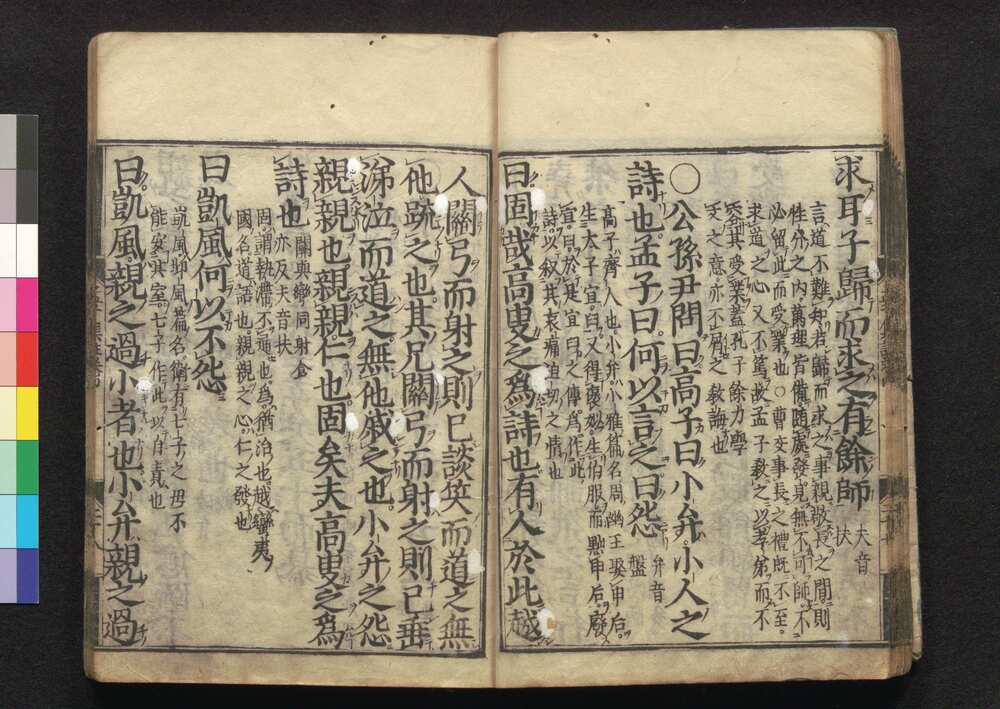 求耳子歸而求之有餘師 夫音扶
言道不難知若歸而求之事親敬長之間則
性分之內萬理皆備隨處發見無不可師不
必留此而受業也○曹交事長之禮既不至
求道之心又不篤故孟子教之以孝弟而不
容其受業蓋孔子餘力學
文之意亦不屑之教誨也
○公孫丑問曰高子曰小弁小人之
詩也孟子曰何以言之曰怨 弁音盤
高子齊人也小弁小雅篇名周幽王娶申后
生太子宜臼又得褒姒生伯服而黜申后廢
宜臼於是宜臼之傅為作此
詩以叙其哀痛迫切之情也
曰固哉高叟之為詩也有人於此越
人關弓而射之則己談笑而道之無
他疏之也其兄關弓而射之則己垂
涕泣而道之無他戚之也小弁之怨
親親也親親仁也固矣夫高叟之為
詩也 關與彎同射食
亦反夫音扶
固謂執滯不通也為猶治也越蠻夷
國名道語也親親之心仁之發也
曰凱風何以不怨
凱風邶風篇名衛有七子之母不
能安其室七子作此以自責也
曰凱風親之過小者也小弁親之過